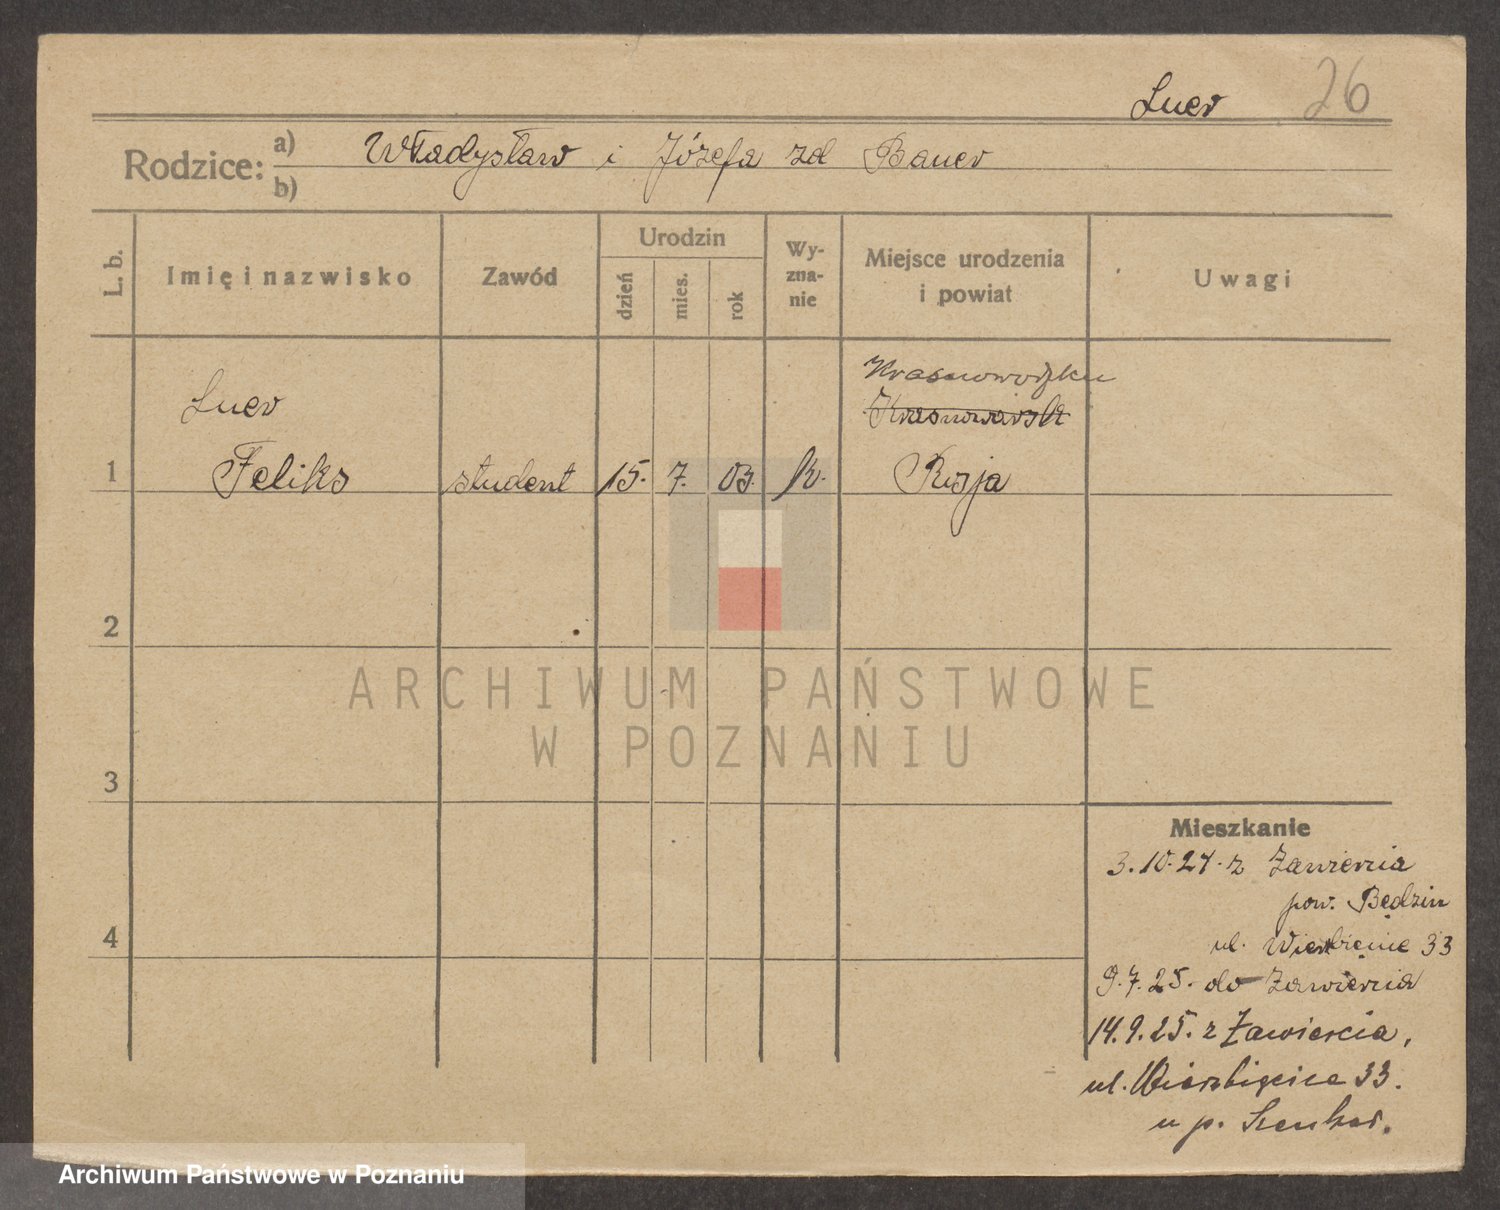 Luer 26
Rodzice: a) Władysław i Józefa zd Bauer
b)
L. b. Imię i nazwisko Zawód Urodzin dzień mies. rok Wy-zna-nie Miejsce urodzenia i powiat Uwagi
Luer
Feliks student 15. 7. 03. k. Rosja
1
2
3
4
Mieszkanie
3.10.24. z Zawiercia
pow. Będzin
ul. Wierzbięcice 33
9.7.25. do Zawiercia
14.9.25. z Zawiercia,
ul. Wierzbięcice 33.
u p.
ARCHIWUM PAŃSTWOWE
W POZNANIU
Archiwum Państwowe w Poznaniu